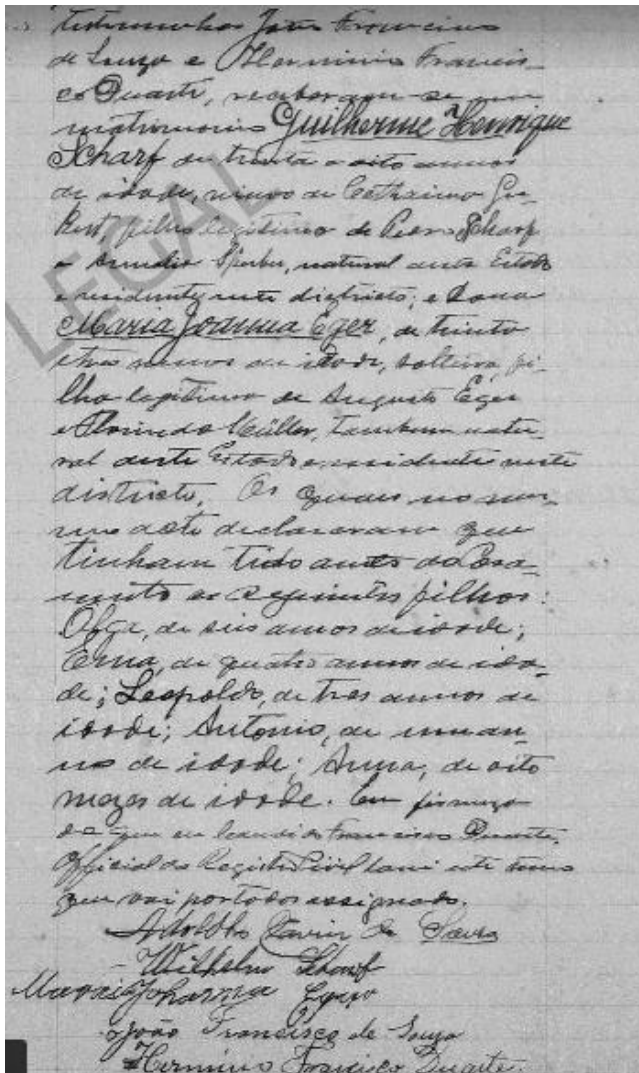 testemunhas João Francisco
de Souza e Herminio Francis-
co Duarte, receberam-se em
matrimonio Guilherme Henrique
Scharf de trinta e oito annos
de idade, viuvo de Catharina
filho legitimo de Pedro Scharf
e Sperber, natural deste Estado
e residente neste districto; e Dona
Maria Joanna Eger, de trinta
e tres annos de idade, solteira, fi-
lha legitima de Augusto Eger
e Müller, tambem natu-
ral deste Estado e residente neste
districto. Os quaes no mes-
mo acto declararam que
tinham tido antes do Casa-
mento os seguintes filhos:
Olga, de seis annos de idade;
Erna, de quatro annos de ida-
de; Leopoldo, de tres annos de
idade; Antonio, de um an-
no de idade; Anna, de oito
mezes de idade. Em firmeza
do que eu Francisco Duarte,
Official do Registro Civil lavrei este termo
que vai por todos assignado.
Adolpho Xavier de
Wilhelm Scharf
Maria Johanna Eger
João Francisco de Souza
Herminio Francisco Duarte.
LEGAL